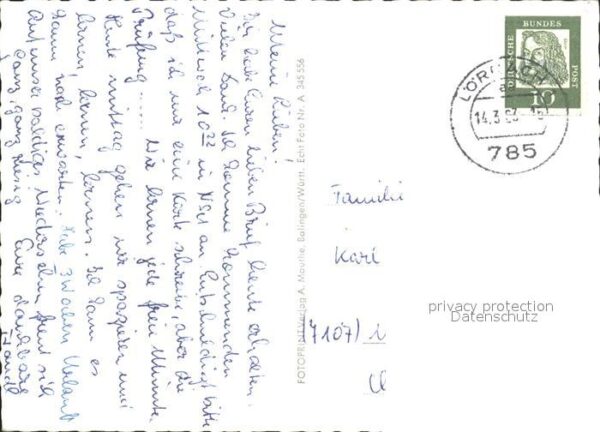 Meine Lieben!
Ich habe Euren lieben Brief heute erhalten.
Vielen Dank. Ich komme kommenden
Mittwoch 10²² in an. Entschuldigt bitte
daß ich nur eine Karte schreibe, aber die
Prüfung..... Wir lernen jede freie Minute.
Heute mittag gehen wir spazieren und
lernen, lernen, lernen. Ich kann es
kaum noch erwarten. Habe 3 Wochen Urlaub
Auf unser baldiges Wiedersehn freut sich
ganz, ganz riesig Eure dankbare
FOTOPRINT-Verlag A. Mauthe, Balingen/Württ. Echt Foto Nr. A 345 556
DEUTSCHE
BUNDES
POST
10
LÖRRACH
14.3.63
785
Familie
Karl
(7107)
privacy protection
Datenschutz